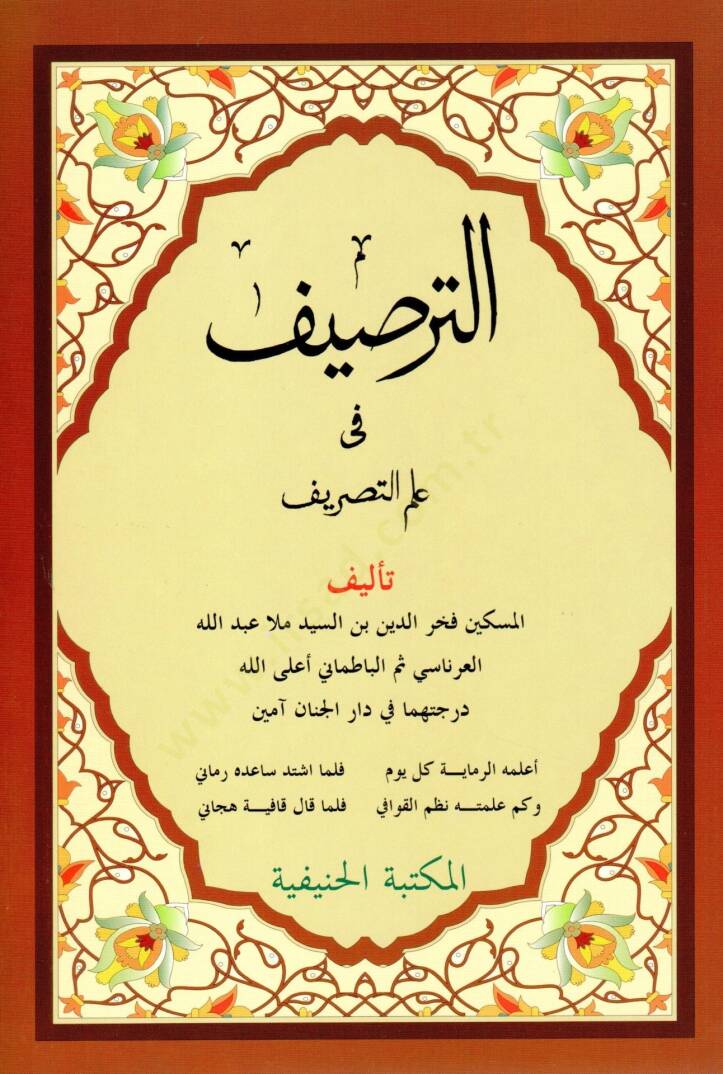 الترصيف
فى
علم التصريف
تأليف
المسكين فخر الدين بن السيد ملا عبد الله
العرناسي ثم الباطماني أعلى الله
درجتهما في دار الجنان آمين
أعلمه الرمايـــة كل يوم فلما اشتد ساعده رماني
وكم علمتـــه نظم القوافي فلما قال قافيـــة هجاني
المكتبة الحنيفية